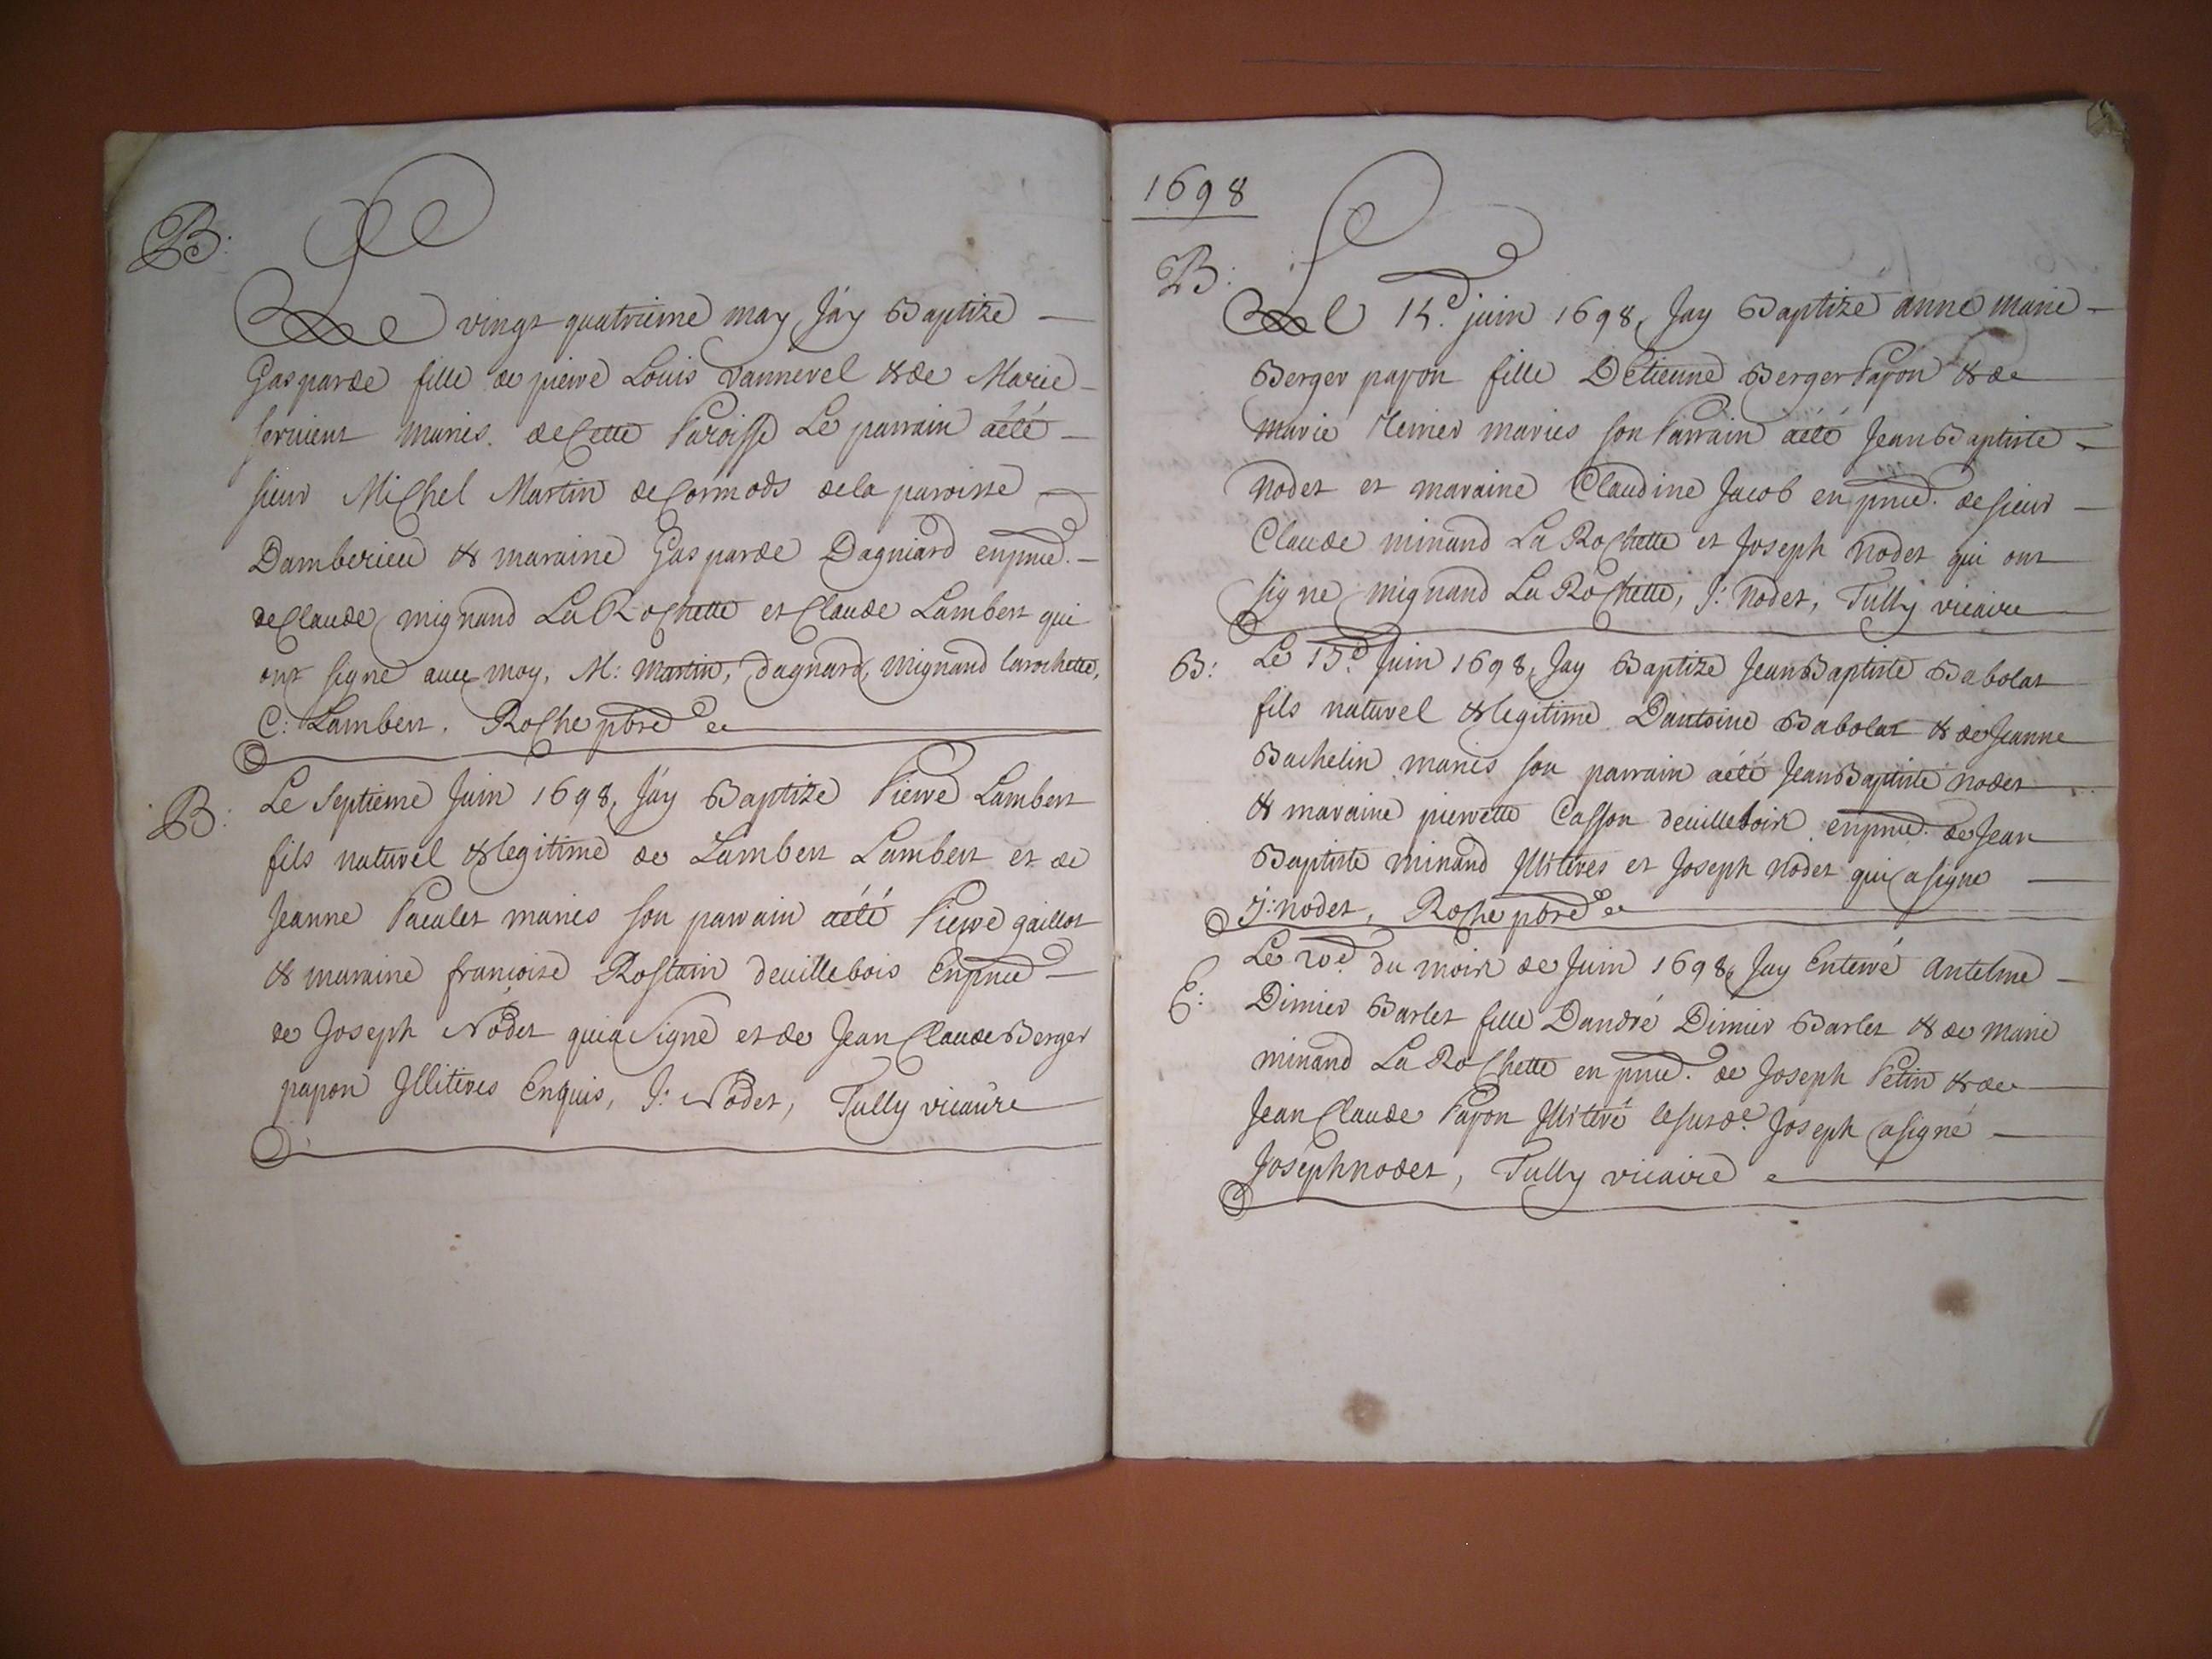 B:
Le vingt quatrieme may J'ay Baptizé
Gasparde fille de pierre Louis vannerel & de Marie
servient maries. de Cette Paroisse Le parrain aété
sieur MiChel Martin de Cormods dela paroisse
Damberieu & maraine Gasparde Dagniard enpnce.
de Claude mignand La RoChette et Claude Lambert qui
ont signé avec moy. M: Martin, dagnard, Mignand larochette,
C: Lambert. RoChe pbre
B:
Le Septieme Juin 1698, J'ay Baptizé Pierre Lambert
fils naturel & legitime de Lambert Lambert et de
Jeanne Paculet maries son parrain aété Pierre gaillot
& maraine françoise Rostain deuillebois Enpnce
de Joseph Nodet quia Signé et de Jean Claude Berger
papon Jlliteres Enquis, J: Nodet, Tully vicaire
1698
B:
Le 14.e juin 1698, Jay Baptizé anne marie
Berger papon fille Detienne Berger Papon & de
marie maries son Parrain aété Jean Baptiste
Nodet et maraine Claudine Jacob en pnce. de sieur
Claude minand La RoChette et Joseph Nodet qui ont
signe mignand La RoChette, J: Nodet, Tully vicaire
B:
Le 15.e Juin 1698, Jay Baptizé Jean Baptiste Babolat
fils naturel & legitime Dantoine Babolat & de Jeanne
Bachelin maries son parrain aété Jean Baptiste Nodet
& maraine pierrette Casson deuillebois enpnce. de Jean
Baptiste minand Jlliteres et Joseph Nodet qui a signe
J: nodet, RoChe pbre
E:
Le 20.e du mois de Juin 1698, Jay Enterré Antelme
Dimier Barlet fille Dandré Dimier Barlet & de Marie
minand La RoChette en pnce. de Joseph Petin & de
Jean Claude Papon Jllitéré lesusd.e Joseph a signé
Joseph nodet, Tully vicaire